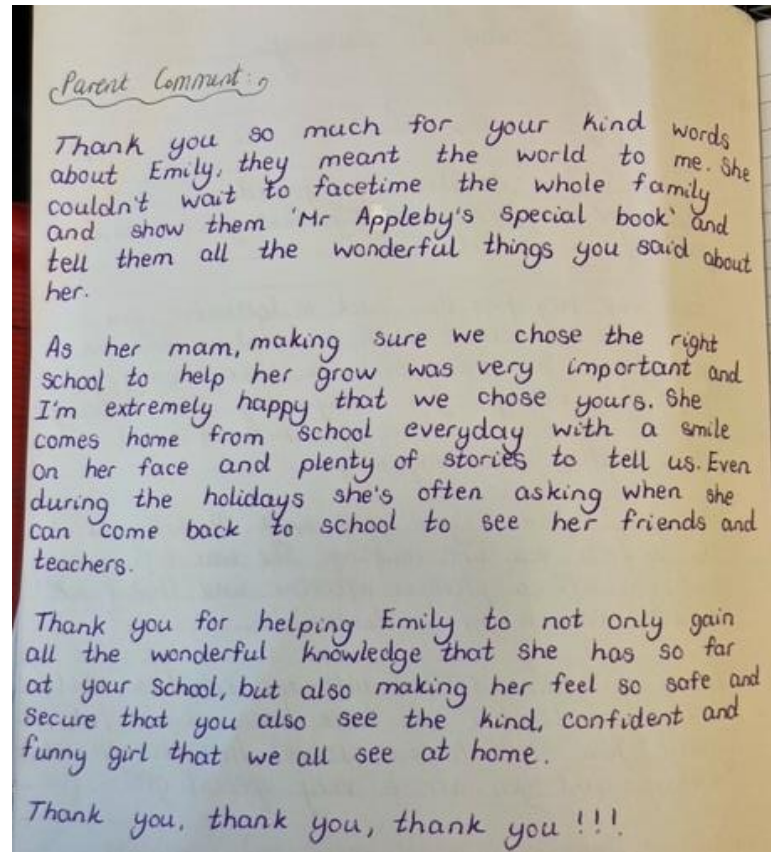 Parent Comment:
Thank you so much for your kind words
about Emily, they meant the world to me. She
couldn't wait to facetime the whole family
and show them 'Mr Appleby's special book' and
tell them all the wonderful things you said about
her.
As her mam, making sure we chose the right
school to help her grow was very important and
I'm extremely happy that we chose yours. She
comes home from school everyday with a smile
on her face and plenty of stories to tell us. Even
during the holidays she's often asking when she
can come back to school to see her friends and
teachers.
Thank you for helping Emily to not only gain
all the wonderful knowledge that she has so far
at your School, but also making her feel so safe and
secure that you also see the kind, confident and
funny girl that we all see at home.
Thank you, thank you, thank you !!!